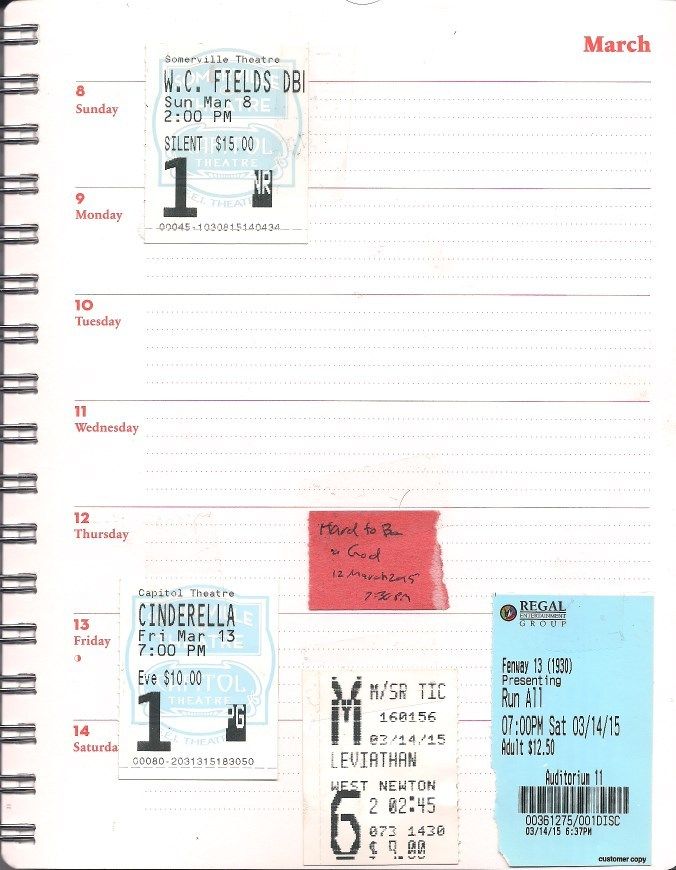 March
8
Sunday
Somerville Theatre
W.C. FIELDS DBL
Sun Mar 8
2:00 PM
SILENT $15.00
THEATRE
1 NR
00045-1030815140434
9
Monday
10
Tuesday
11
Wednesday
12
Thursday
Hard to Be
a God
12 March 2015
7:30 PM
13
Friday
Capitol Theatre
CINDERELLA
Fri Mar 13
7:00 PM
Eve $10.00
THEATRE
1 PG
00080-2031315183050
14
Saturda
M/SR TIC
160156
03/14/15
LEVIATHAN
WEST NEWTON
6 2 02:45
073 1430
$ 9.00
REGAL
ENTERTAINMENT
GROUP
Fenway 13 (1930)
Presenting
Run All
07:00PM Sat 03/14/15
Adult $12.50
Auditorium 11
00361275/001DISC
03/14/15 6:37PM
customer copy